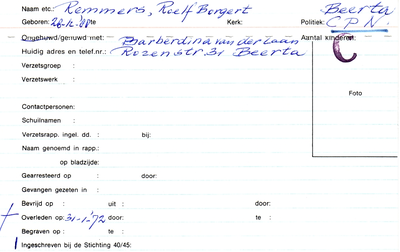 Naam etc.: Remmers, Roelf Borgert Beerta
Geboren: 26-12-'88 /te Kerk: Politiek: C.P.N.
Ongehuwd/gehuwd met: Barberdina van der Laan Aantal kinderen:
Huidig adres en telef.nr.: Rozenstr. 31 Beerta C
Verzetsgroep :
Verzetswerk :
Foto
Contactpersonen:
Schuilnamen :
Verzetsrapp. ingel. dd. : bij:
Naam genoemd in rapp.:
op bladzijde:
Gearresteerd op : door:
Gevangen gezeten in :
Bevrijd op : uit : door:
Overleden op: 31-1-'72 door: te :
Begraven op : te :
Ingeschreven bij de Stichting 40/45: